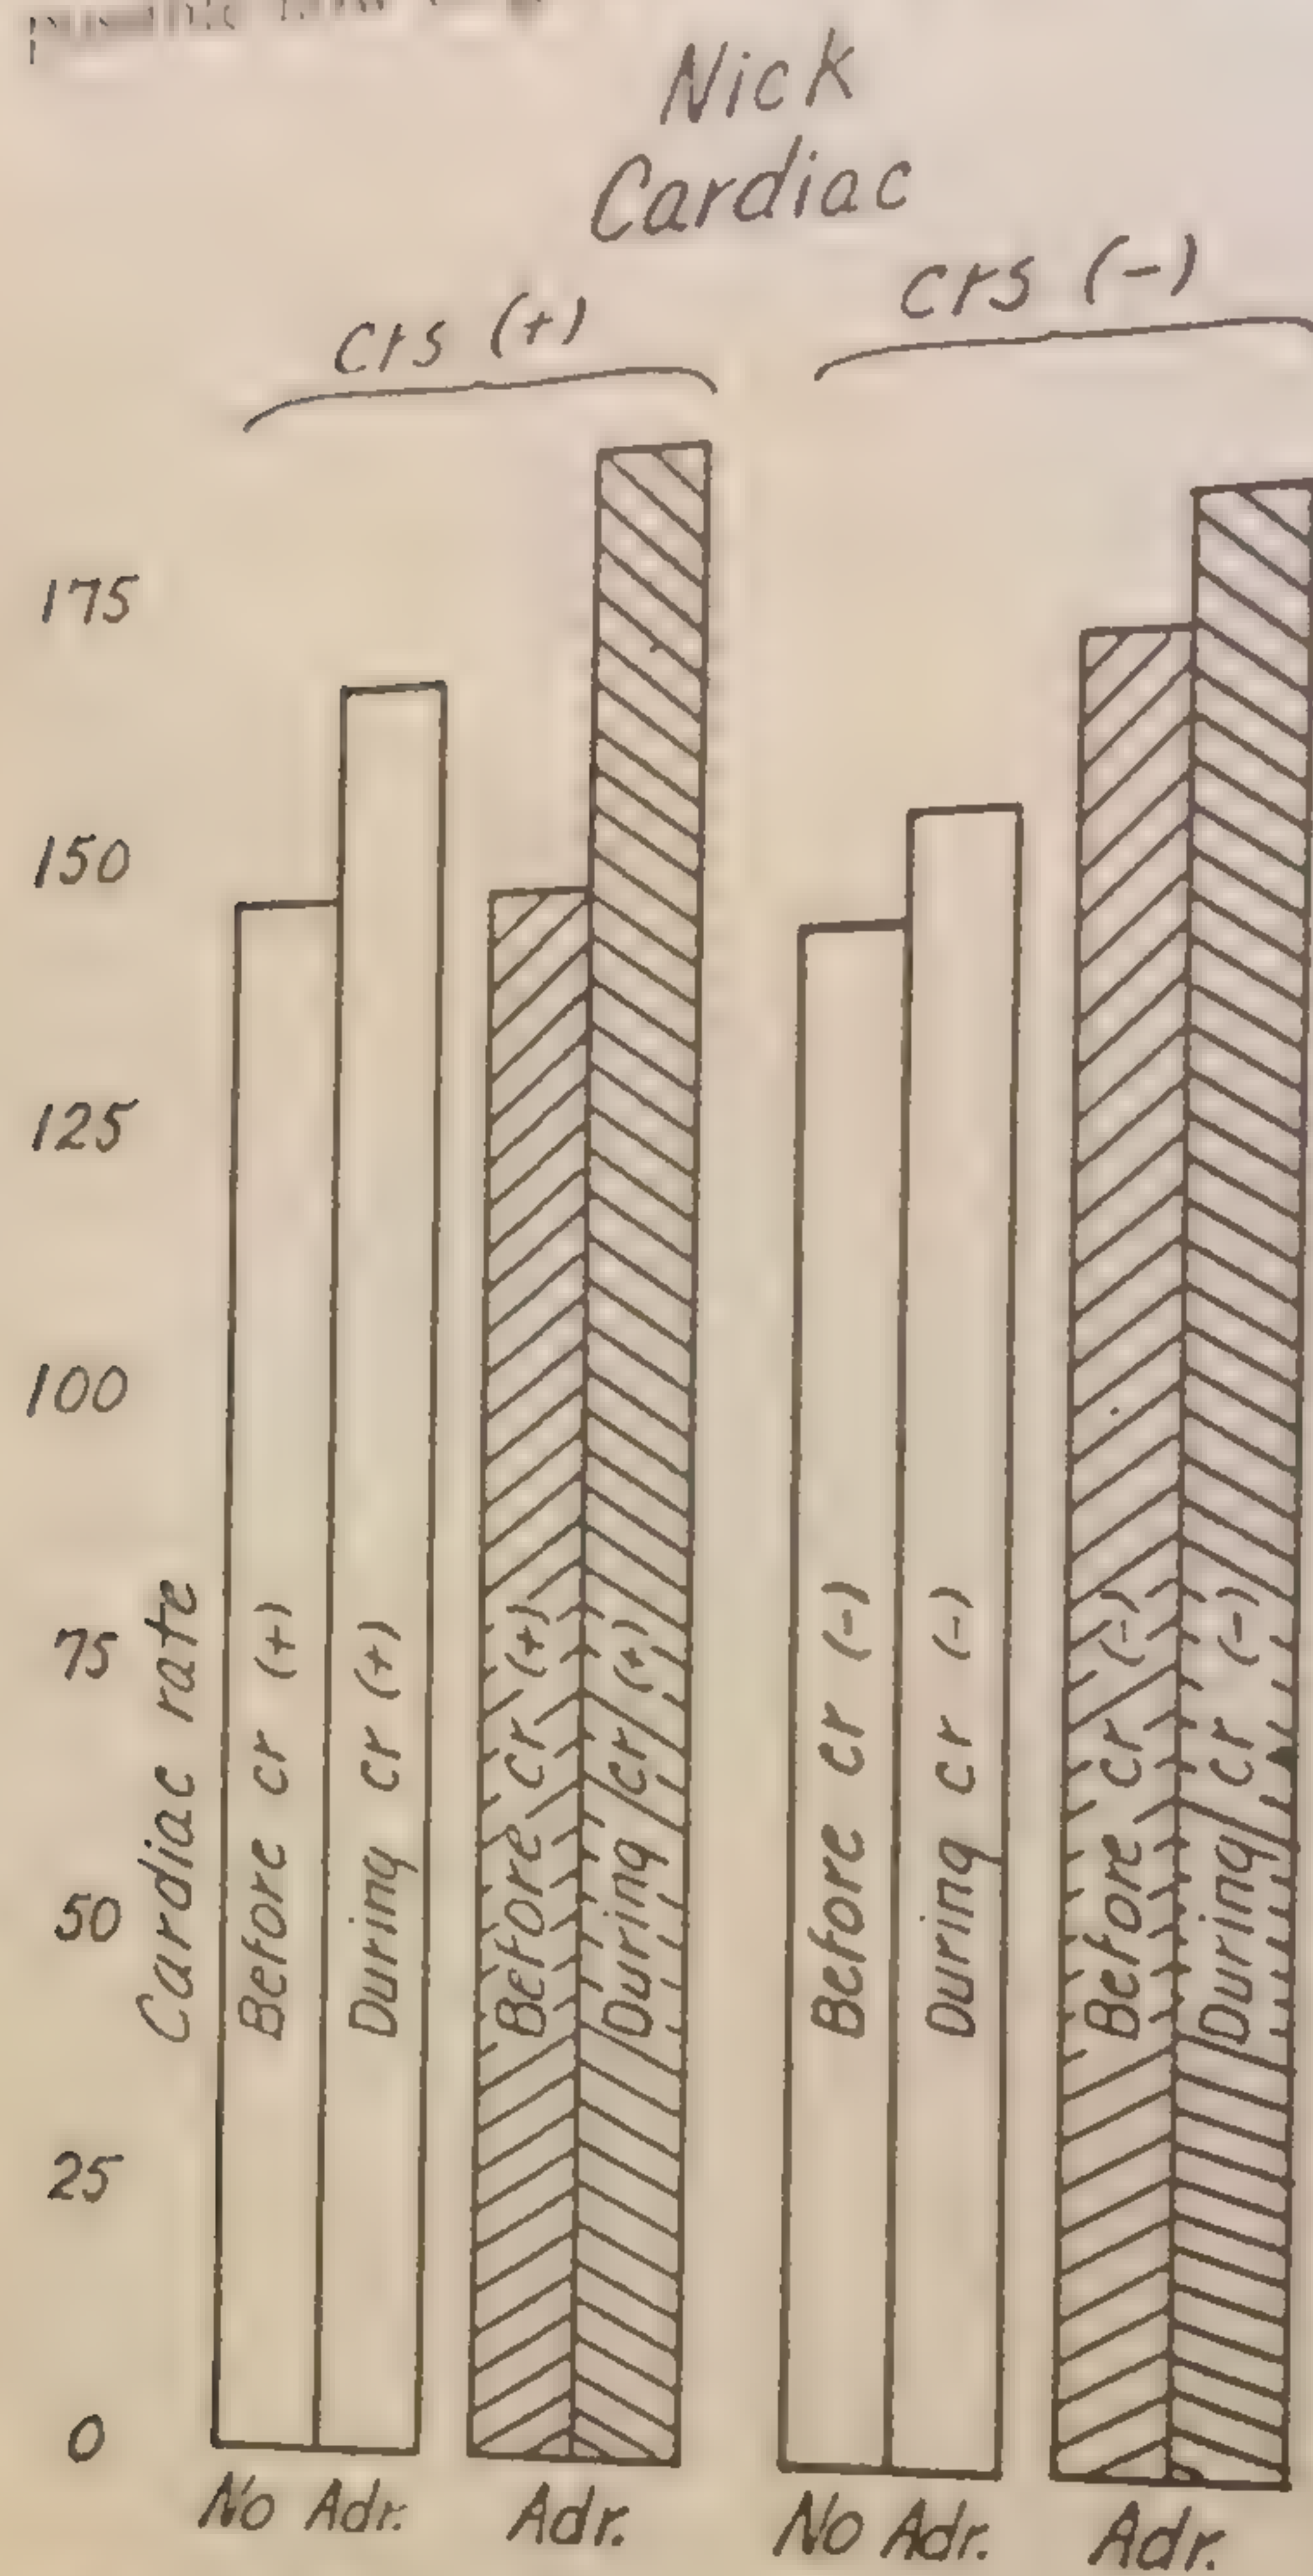 Nick
Cardiac
crs (+)
crs (-)
175
150
125
100
75
50
25
0
Cardiac rate
Before cr (+)
During cr (+)
Before cr (+)
During cr (+)
Before cr (-)
During cr (-)
Before cr (-)
During cr (-)
No Adr.
Adr.
No Adr.
Adr.